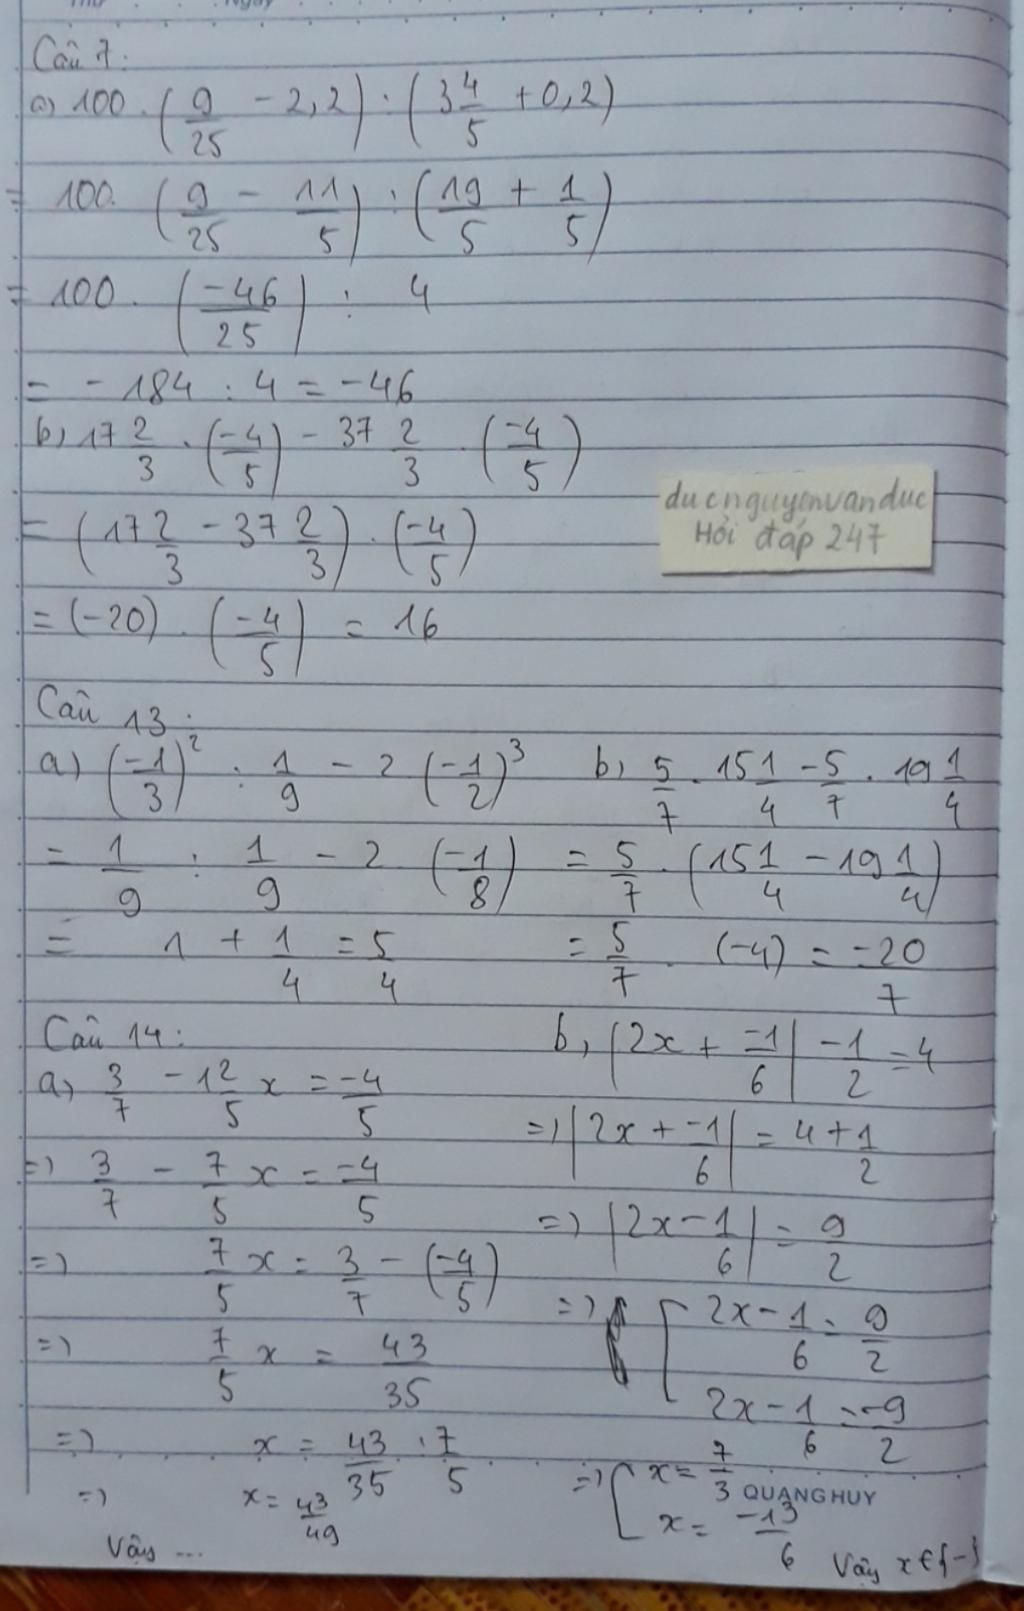 Câu 7:
a) 100 . (9/25 - 2,2) : (3 4/5 + 0,2)
= 100. (9/25 - 11/5) : (19/5 + 1/5)
= 100 . (-46/25) : 4
= -184 : 4 = -46
b) 17 2/3 . (-4/5) - 37 2/3 . (-4/5)
= (17 2/3 - 37 2/3) . (-4/5)
= (-20) . (-4/5) = 16
ducnguyenvanduc
Hỏi đáp 247
Câu 13:
a) (-1/3)² : 1/9 - 2 (-1/2)³
= 1/9 : 1/9 - 2 (-1/8)
= 1 + 1/4 = 5/4
b) 5/7 . 15 1/4 - 5/7 . 19 1/4
= 5/7 . (15 1/4 - 19 1/4)
= 5/7 . (-4) = -20/7
Câu 14:
a) 3/7 - 1 2/5 x = -4/5
=) 3/7 - 7/5 x = -4/5
=) 7/5 x = 3/7 - (-4/5)
=) 7/5 x = 43/35
=) x = 43/35 : 7/5
=) x = 43/49
Vậy ...
b, |2x + -1/6| - 1/2 = 4
=) |2x + -1/6| = 4 + 1/2
=) |2x - 1/6| = 9/2
=) [ 2x - 1/6 = 9/2
2x - 1/6 = -9/2
=) [ x = 7/3
x = -13/6
QUANG HUY
Vậy x ∈ {-}